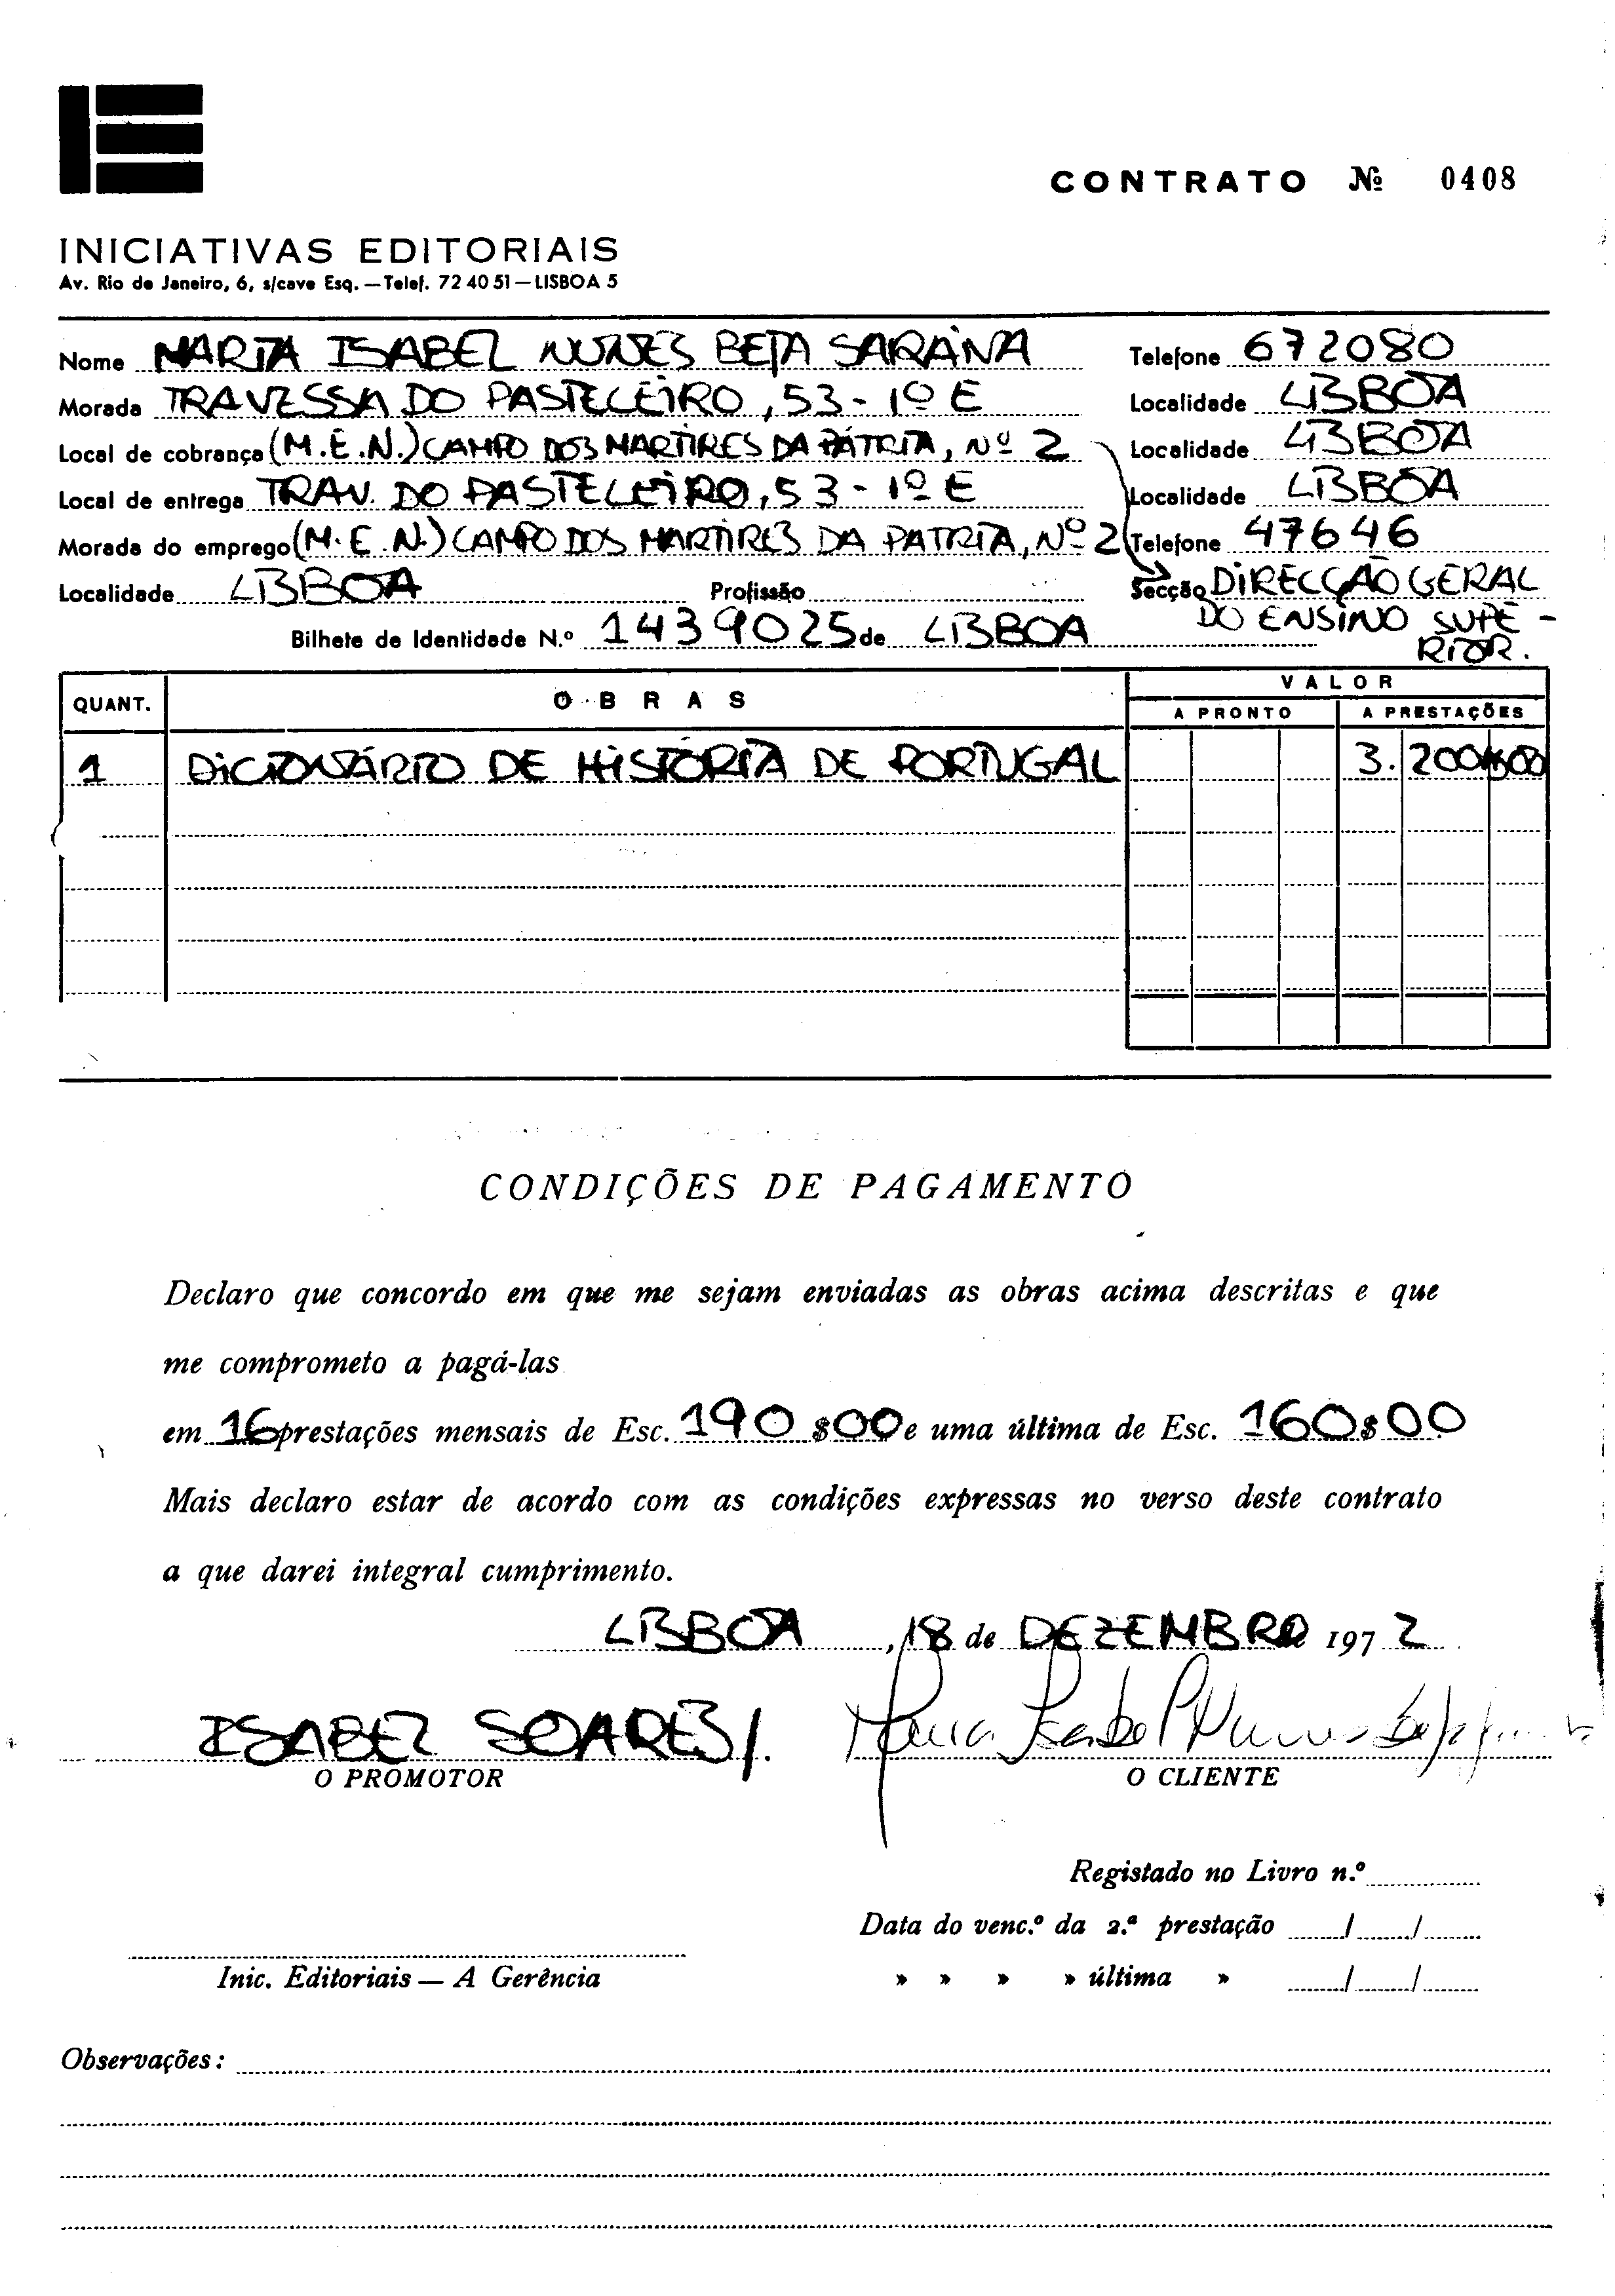 CONTRATO Nº 0408
INICIATIVAS EDITORIAIS
Av. Rio de Janeiro, 6, s/cave Esq. — Telef. 72 40 51 — LISBOA 5
Nome MARIA ISABEL NUNES BEJA SARAIVA Telefone 672080
Morada TRAVESSA DO PASTELEIRO, 53 - 1º E Localidade LISBOA
Local de cobrança (M.E.N.) CAMPO DOS MARTIRES DA PÁTRIA, Nº 2 Localidade LISBOA
Local de entrega TRAV. DO PASTELEIRO, 53 - 1º E Localidade LISBOA
Morada do emprego (M.E.N.) CAMPO DOS MARTIRES DA PATRIA, Nº 2 Telefone 47646
Localidade LISBOA Profissão Secção DIRECÇÃO GERAL
Bilhete de Identidade N.º 1439025 de LISBOA DO ENSINO SUPE-
RIOR.
QUANT. OBRAS VALOR
A PRONTO A PRESTAÇÕES
1 DICIONÁRIO DE HISTÓRIA DE PORTUGAL 3.200$00
CONDIÇÕES DE PAGAMENTO
Declaro que concordo em que me sejam enviadas as obras acima descritas e que
me comprometo a pagá-las
em 16 prestações mensais de Esc. 190$00 e uma última de Esc. 160$00
Mais declaro estar de acordo com as condições expressas no verso deste contrato
a que darei integral cumprimento.
LISBOA, 18 de DEZEMBRO 1972
ISABEL SOARES/. Maria Isabel Nunes Beja
O PROMOTOR O CLIENTE
Registado no Livro n.º
Data do venc.º da 2.ª prestação / /
Inic. Editoriais — A Gerência » » » » última » / /
Observações: